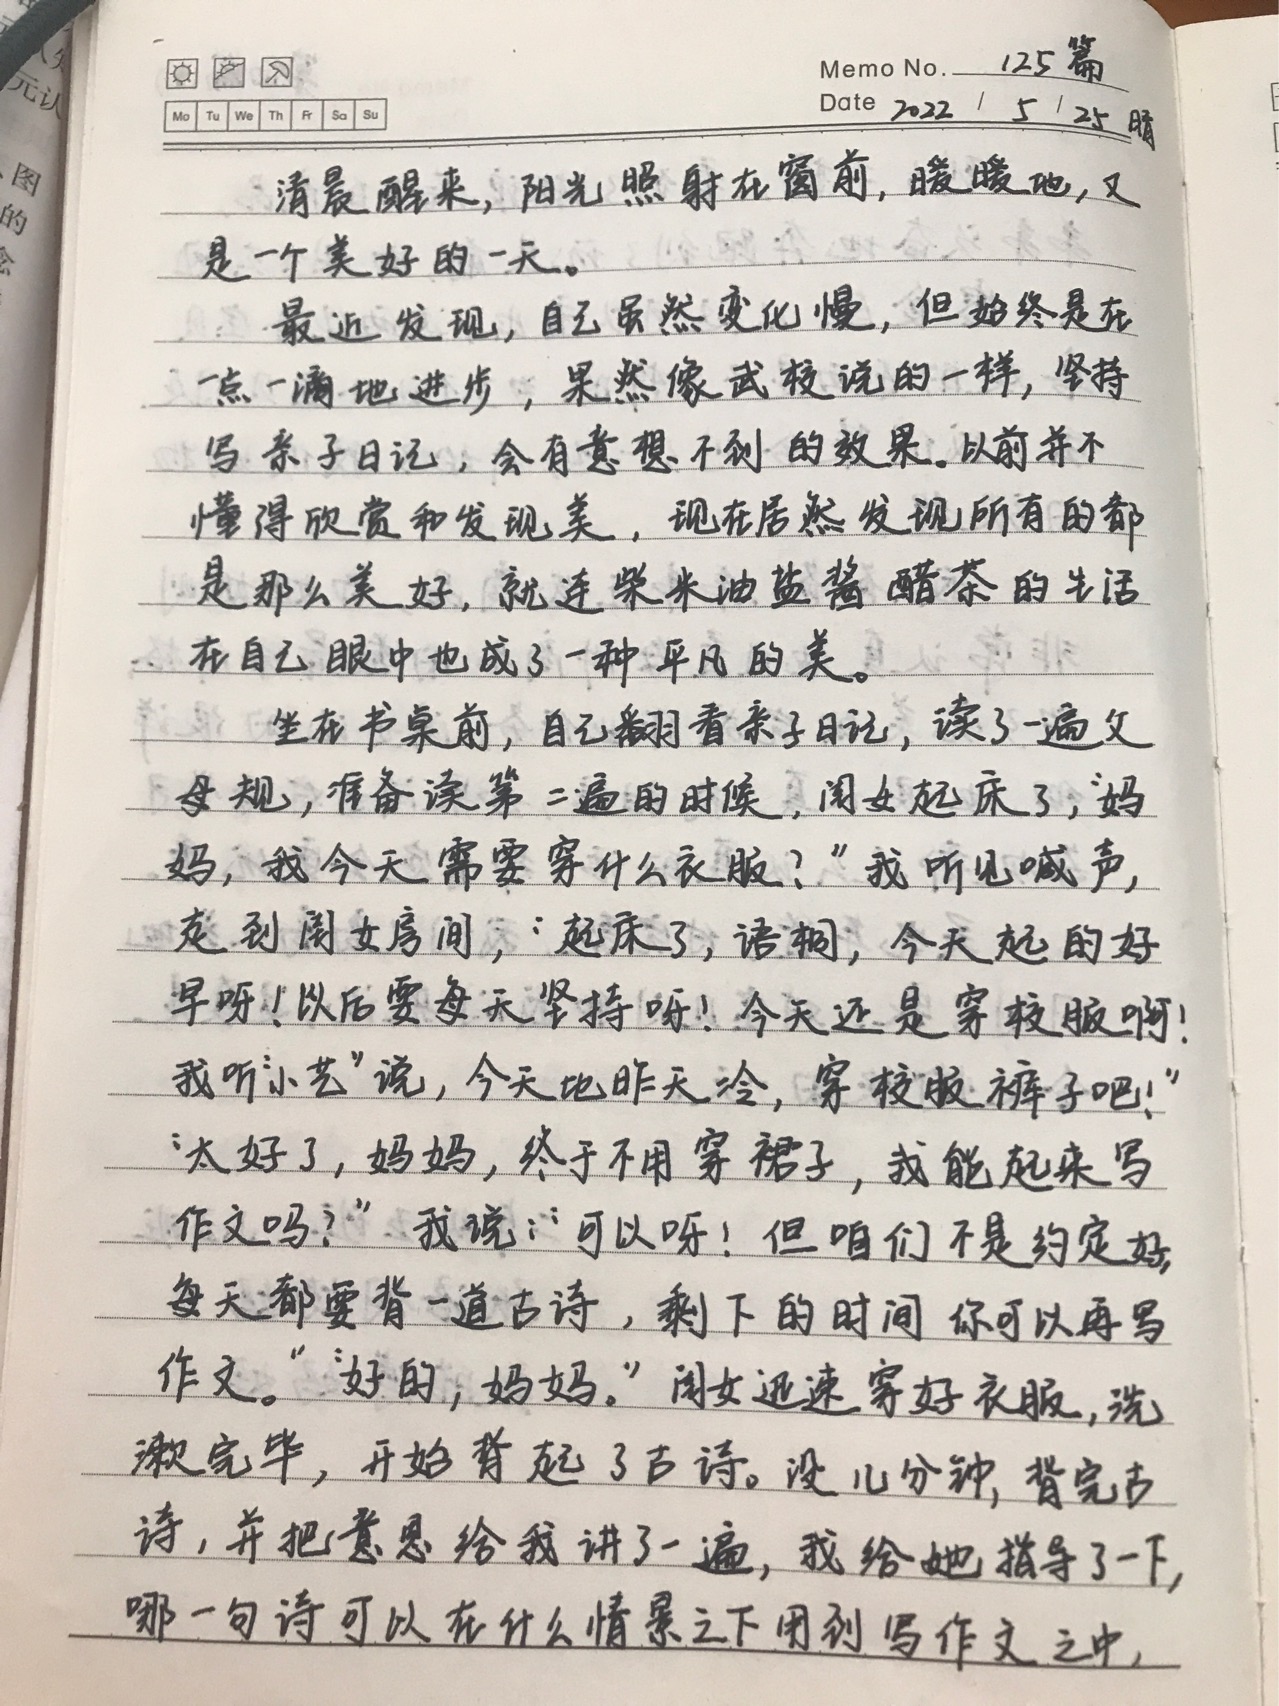 Memo No. 125篇
Mo Tu We Th Fr Sa Su
Date 2022 / 5 / 25 晴
清晨醒来，阳光照射在窗前，暖暖地，又
是一个美好的一天。
最近发现，自己虽然变化慢，但始终是在
一点一滴地进步，果然像武校说的一样，坚持
写亲子日记，会有意想不到的效果。以前并不
懂得欣赏和发现美，现在居然发现所有的都
是那么美好，就连柴米油盐酱醋茶的生活
在自己眼中也成了一种平凡的美。
坐在书桌前，自己翻看亲子日记，读了一遍父
母规，准备读第二遍的时候，闺女起床了，“妈
妈，我今天需要穿什么衣服？”我听见喊声，
走到闺女房间，：起床了，语桐，今天起的好
早呀！以后要每天坚持呀！今天还是穿校服啊！
我听“小艺”说，今天地昨天冷，穿校服裤子吧！”
“太好了，妈妈，终于不用穿裙子，我能起来写
作文吗？”我说：“可以呀！但咱们不是约定好，
每天都要背一道古诗，剩下的时间你可以再写
作文。”“好的，妈妈。”闺女迅速穿好衣服，洗
漱完毕，开始背起了古诗。没几分钟，背完古
诗，并把意思给我讲了一遍，我给她指导了一下，
哪一句诗可以在什么情景之下用到写作文之中，
元认
图
的
念